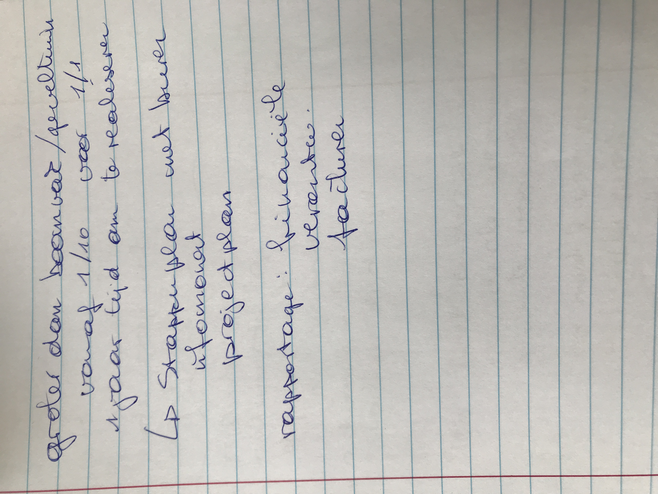 groter dan boomvak/geveltuin
vanaf 1/10 voor 1/1
1 jaar tijd om te realiseren
↳ Stappenplan met buren
infomoment
projectplan
rapportage: financiële
verantw.
facturen